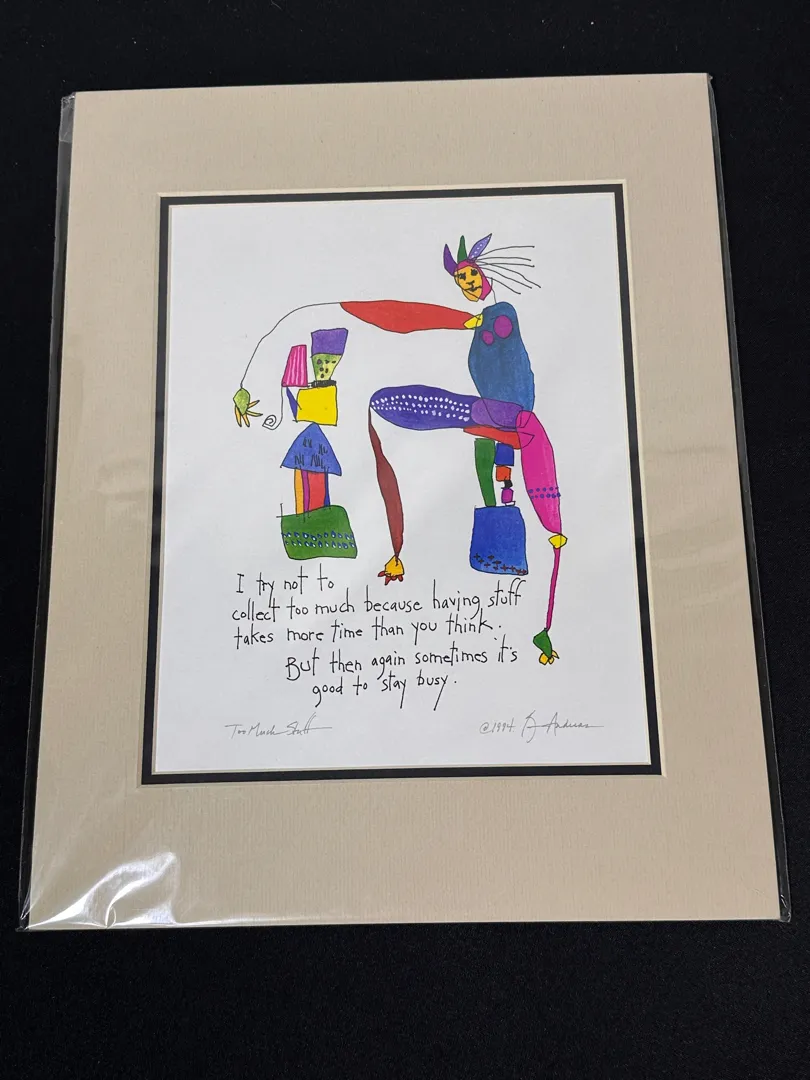 I try not to
collect too much because having stuff
takes more time than you think.
But then again sometimes it's
good to stay busy.
Too Much Stuff
©1994. Bj Andreas